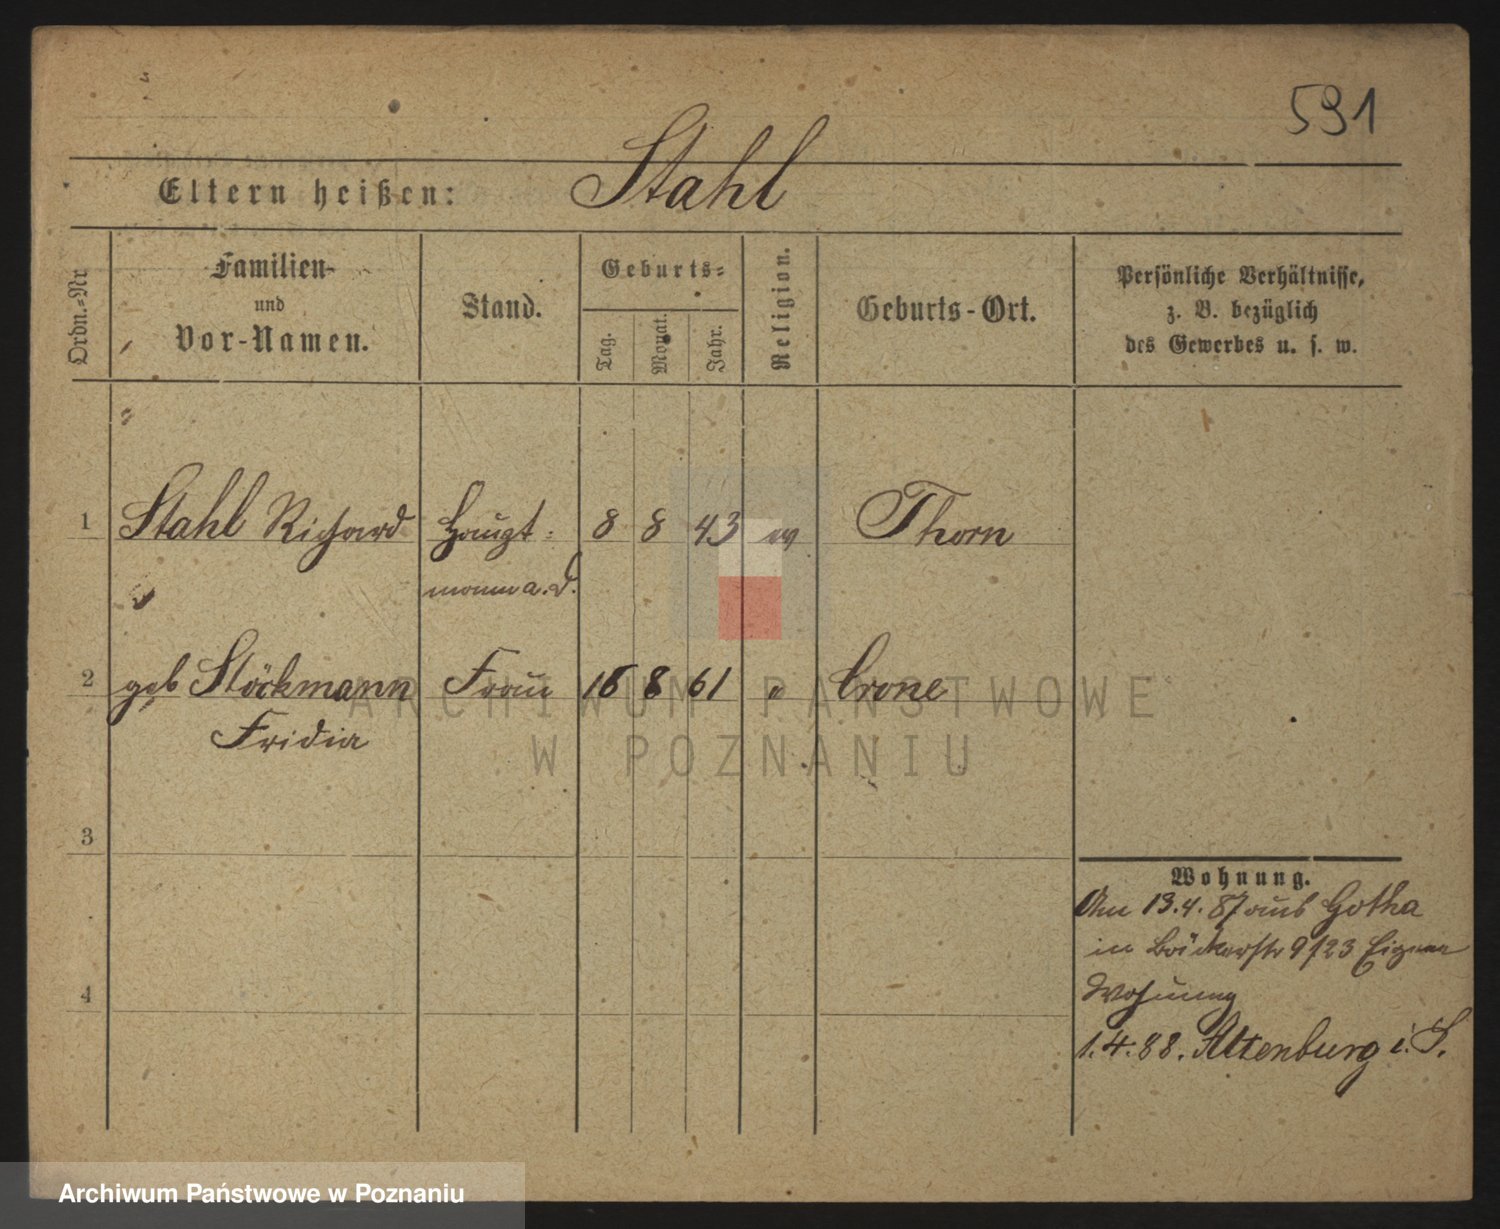 591
Eltern heißen: Stahl
Ordn.=Nr
Familien-
und
Vor-Namen.
Stand.
Geburts=
Tag.
Monat.
Jahr.
Religion.
Geburts-Ort.
Persönliche Verhältnisse,
z. B. bezüglich
des Gewerbes u. s. w.
1 Stahl Richard Haupt= 8 8 43 ev Thorn
mann a. D.
2 geb Stöckmann Frau 16 8 61 " Crone
Fridia
3
4
Wohnung.
Am 13.4.87 aus Gotha
in Bäckerstr 9/23 Eigene
Wohnung
1.4.88. Altenburg i. S.
ARCHIWUM PAŃSTWOWE
W POZNANIU
Archiwum Państwowe w Poznaniu